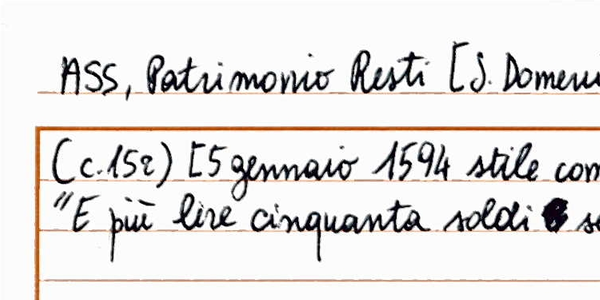 ASS, Patrimonio Resti [S. Domeni
(c.15r) [5 gennaio 1594 stile com
"E più lire cinquanta soldi se